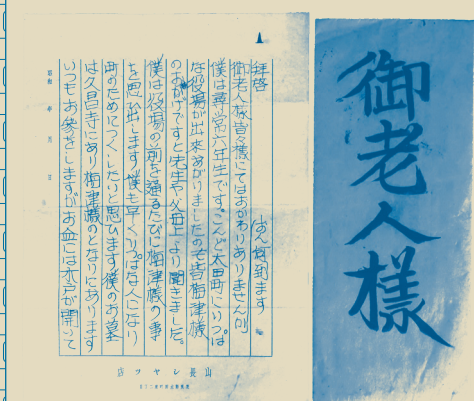 拝啓
御老人様皆々様にてはおかわりありませんか
僕は尋常六年生です。こんど太田町にりっぱ
な役場が出来あがりましたのも皆梅津様
のおかげですと先生や父母上より聞きました。
僕は役場の前を通るたびに梅津様の事
を思い出します。僕も早くりっぱな人になり
町のためにつくしたいと思ひます僕のお墓
は久昌寺にあり梅津様のとなりにあります
いつもお参をしますがお盆には水戸が開いて
山長シャツ店
御老人様